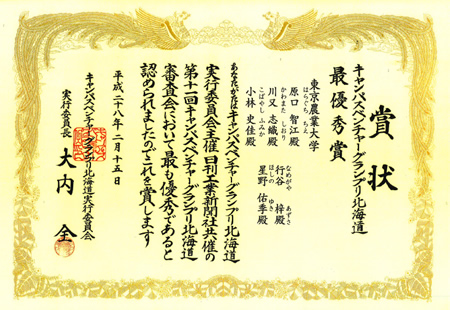 賞状
キャンパスベンチャーグランプリ北海道
最優秀賞
東京農業大学
はらぐち ちえ
原口 智江殿
かわまた しおり
川又 志織殿
こばやし ふみか
小林 史佳殿
なめがや あずさ
行谷 梓殿
ほしの ゆき
星野 佑季殿
あなたがたはキャンパスベンチャーグランプリ北海道
実行委員会主催 日刊工業新聞社共催の
第十一回キャンパスベンチャーグランプリ北海道
審査会において最も優秀であると
認められましたのでこれを賞します
平成二十八年二月十五日
キャンパスベンチャーグランプリ北海道実行委員会
実行委員長 大内 全